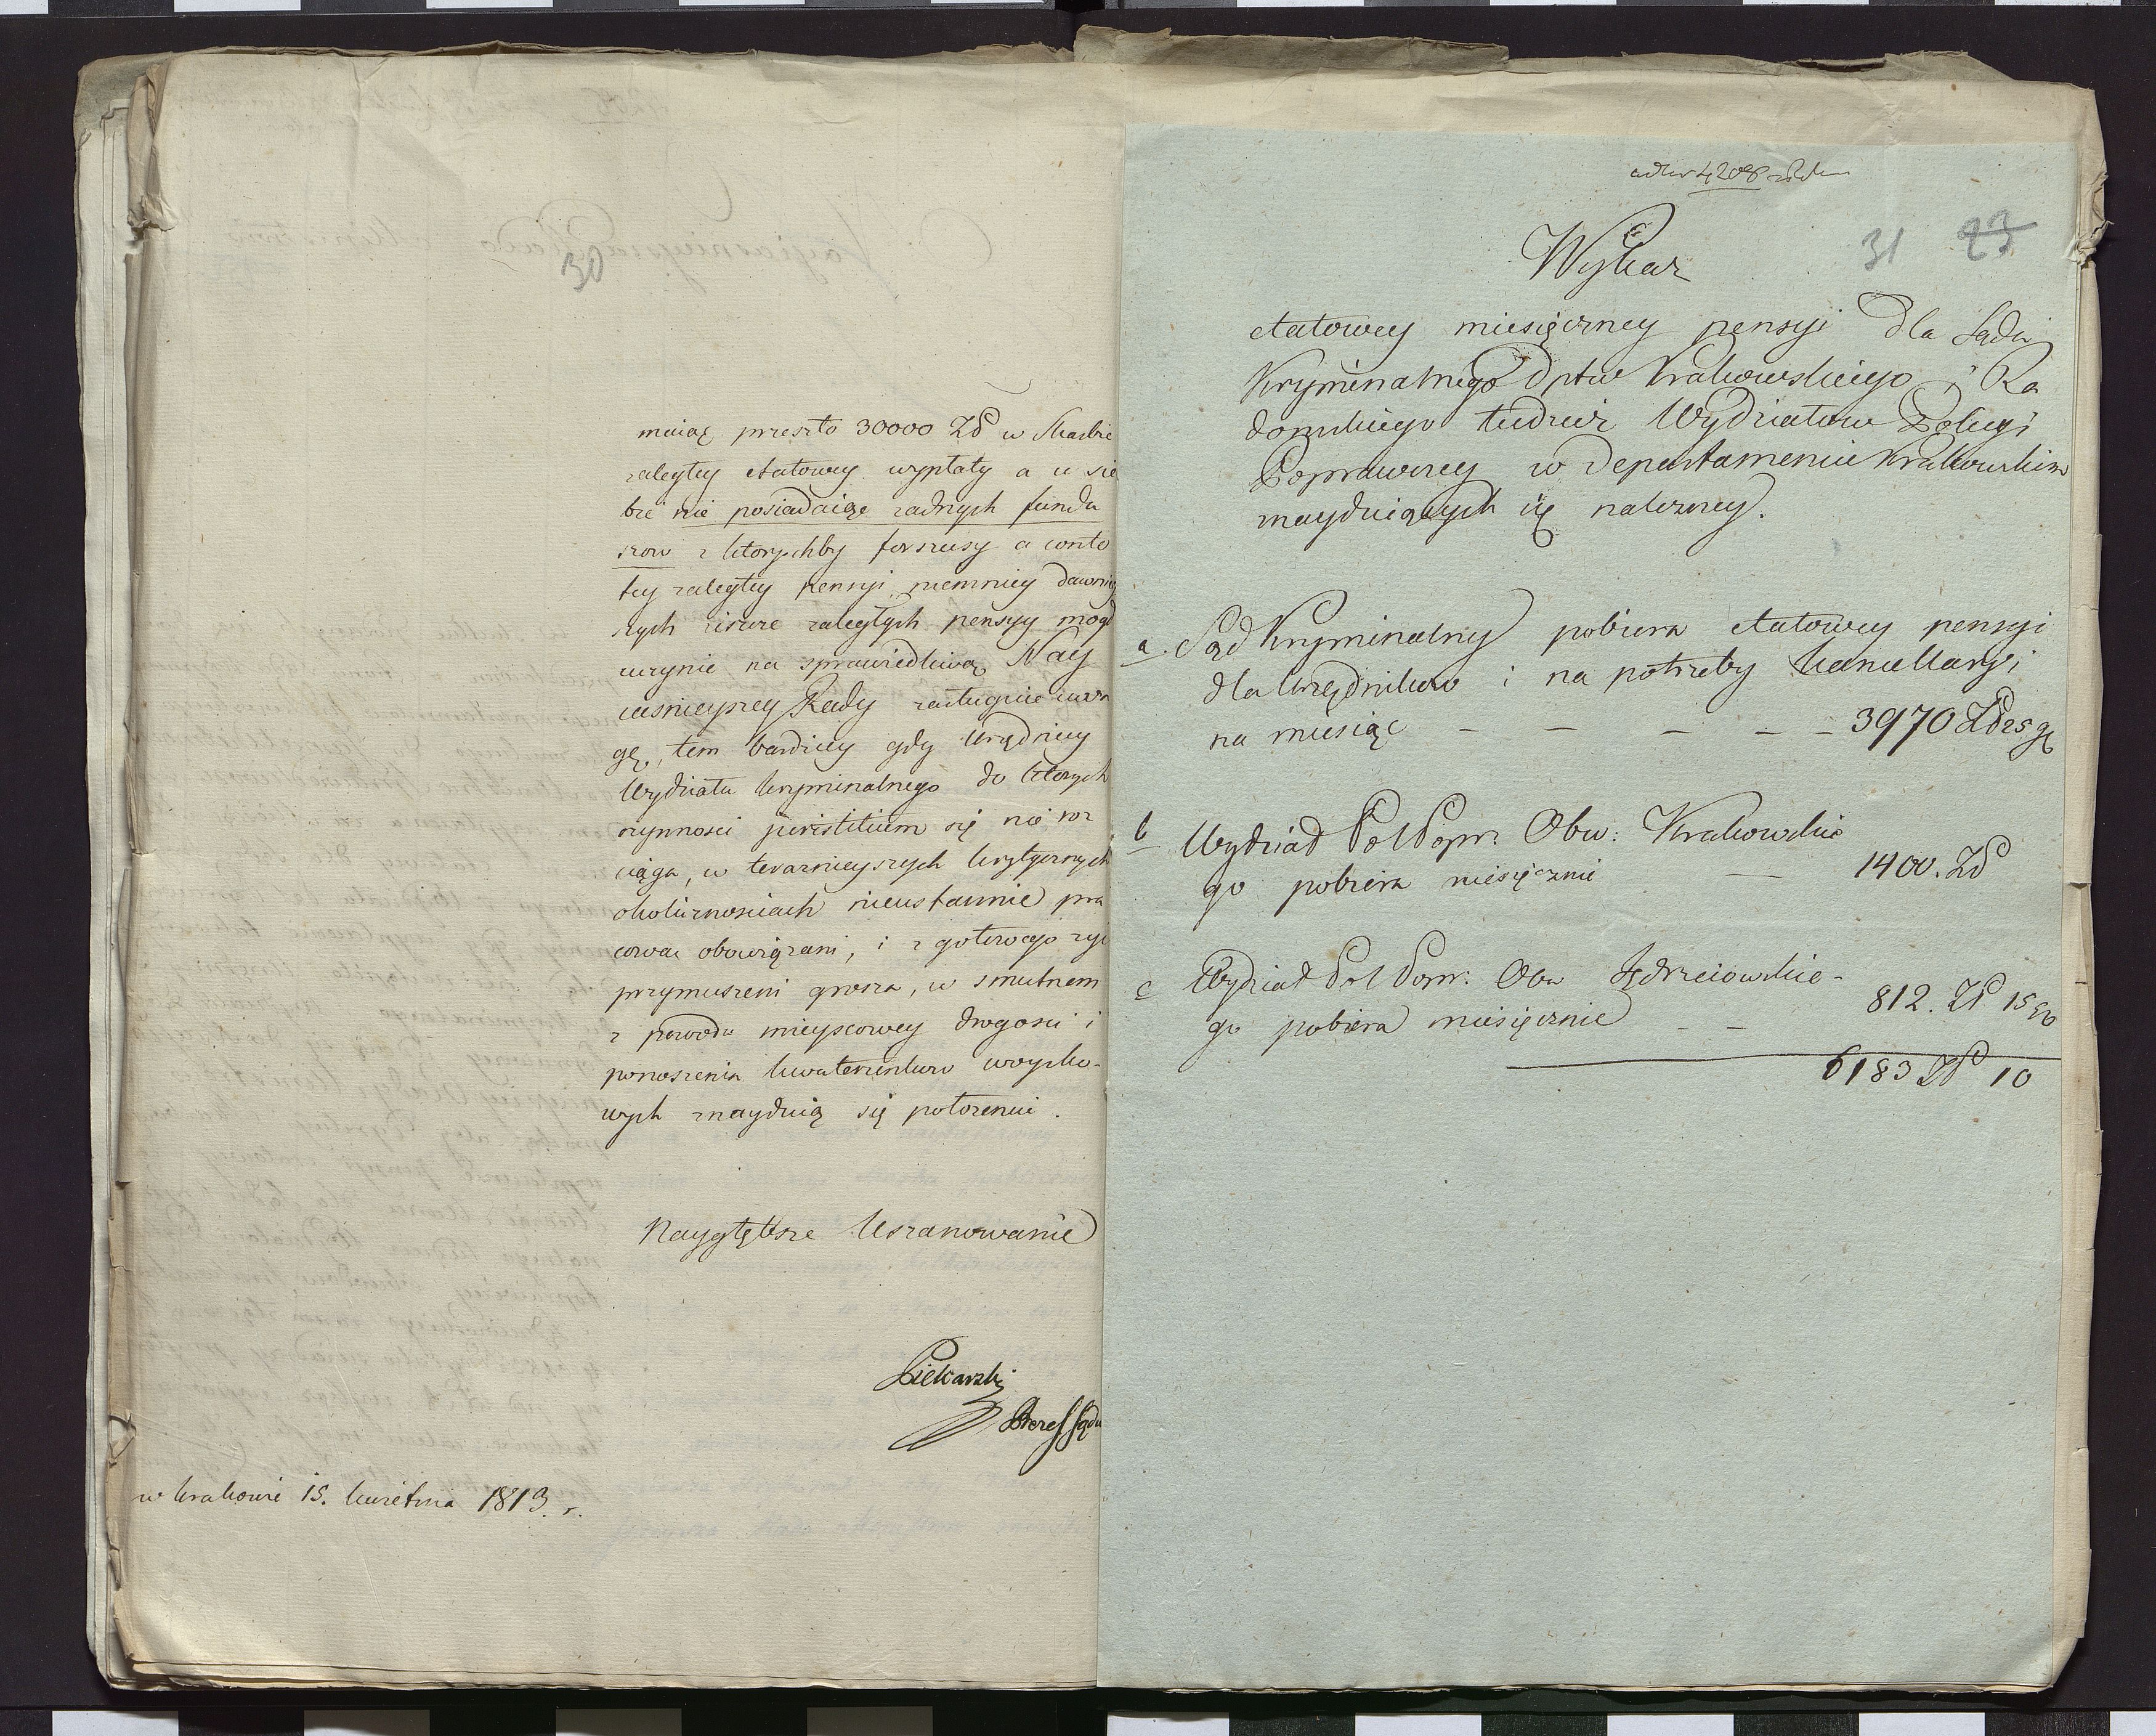 30
maiąc przeszło 30000 Zł w Skarbie
zaległey etatowey wypłaty a u sie
bie nie posiadaiąc żadnych fundu
szow z ktorychby forszusy a conto
tey zaległey pensyi, niemniey dawniey
szych iescze zaległych pensyy mogł
uczynić na sprawiedliwą Nay
iaśnieyszey Rady zasługuie uwa
gę, tem bardziey gdy Urzędnicy
Wydziału kryminalnego do ktorych
czynności juristitium się nie roz
ciąga, w teraznieyszych krytycznych
okolicznosciach nieustannie pra
cować obowiązani, i z gotowego żyć
przymuszeni grosza, w smutnem
z powodu mieyscowey drogosci i
ponoszenia kwaterunkow woysko-
wych znayduią się położeniu.
Naygłębsze Uszanowanie
Piekarski
Prezes Sądu
w krakowie 15. kwietnia 1813. r.
4208
31 23
Wykaz
etatowey miesięczney pensyi dla Sądu
Kryminalnego Dptw Krakowskiego i Ra
domskiego tudzież Wydziałow Policyi
Poprawczey w Departamencie Krakowskim
znayduiących się należney.
a. Sąd Kryminalny pobiera etatowey pensyi
dla Urzędnikow i na potrzeby kancellaryi
na miesiąc — — — — 3970 Zł 25 gr
b Wydział Pol Popr: Obw: Krakowskie
go pobiera miesięcznie — 1400. Zł
c Wydział Pol Popr: Obw Jędrzeiowskie-
go pobiera miesięcznie — — 812. Zł 15 gr
6183 Zł 10